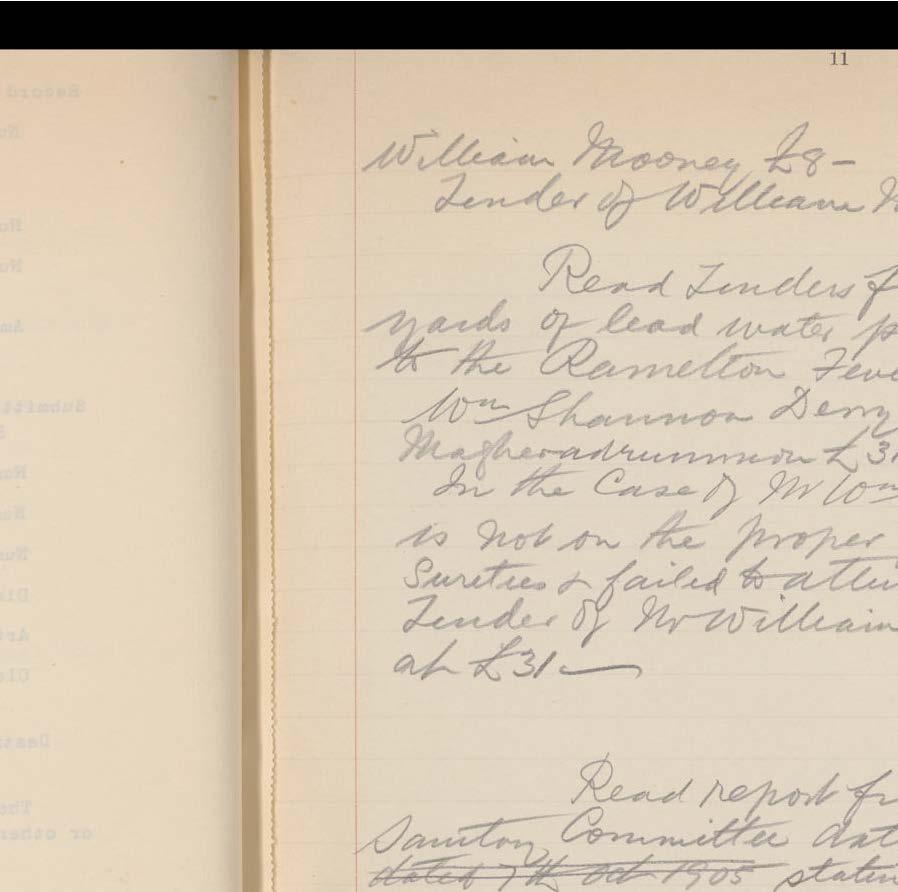 11
William Mooney £8 –
Tender of William
Read Tenders f
yards of lead water p
to the Ramelton Feve
Wm Shannon Derry
Magheradrummon £31
In the Case of Mr Wm
is not on the proper
Sureties & failed to atten
Tender of Mr William
at £31 —
Read report fr
Sanitory Committee dat
dated 7th Oct 1905 statin